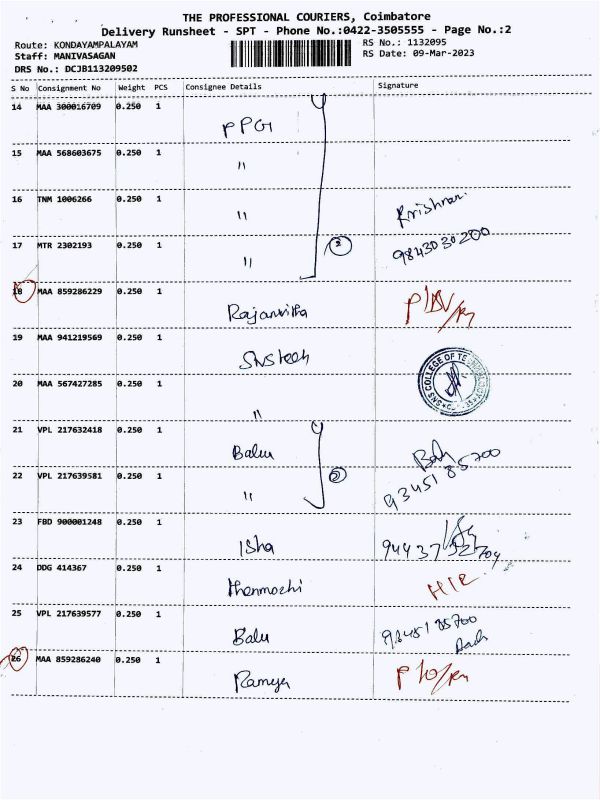 THE PROFESSIONAL COURIERS, Coimbatore
Delivery Runsheet - SPT - Phone No.:0422-3505555 - Page No.:2
Route: KONDAYAMPALAYAM RS No.: 1132095
Staff: MANIVASAGAN RS Date: 09-Mar-2023
DRS No.: DCJB113209502
S No Consignment No Weight PCS Consignee Details Signature
14 MAA 300016709 0.250 1
PPG
15 MAA 568603675 0.250 1
"
16 TNM 1006266 0.250 1
" Krishnan
17 MTR 2302193 0.250 1
" 2 9843030200
18 MAA 859286229 0.250 1
19 MAA 941219569 0.250 1
SNS tech
20 MAA 567427285 0.250 1
SNS COLLEGE OF TECHNOLOGY
"
21 VPL 217632418 0.250 1
Balu
22 VPL 217639581 0.250 1
" 2 93451 85700
23 FBD 900001248 0.250 1
Isha
24 DDG 414367 0.250 1
Thenmozhi
25 VPL 217639577 0.250 1
Balu
26 MAA 859286240 0.250 1
Ramya